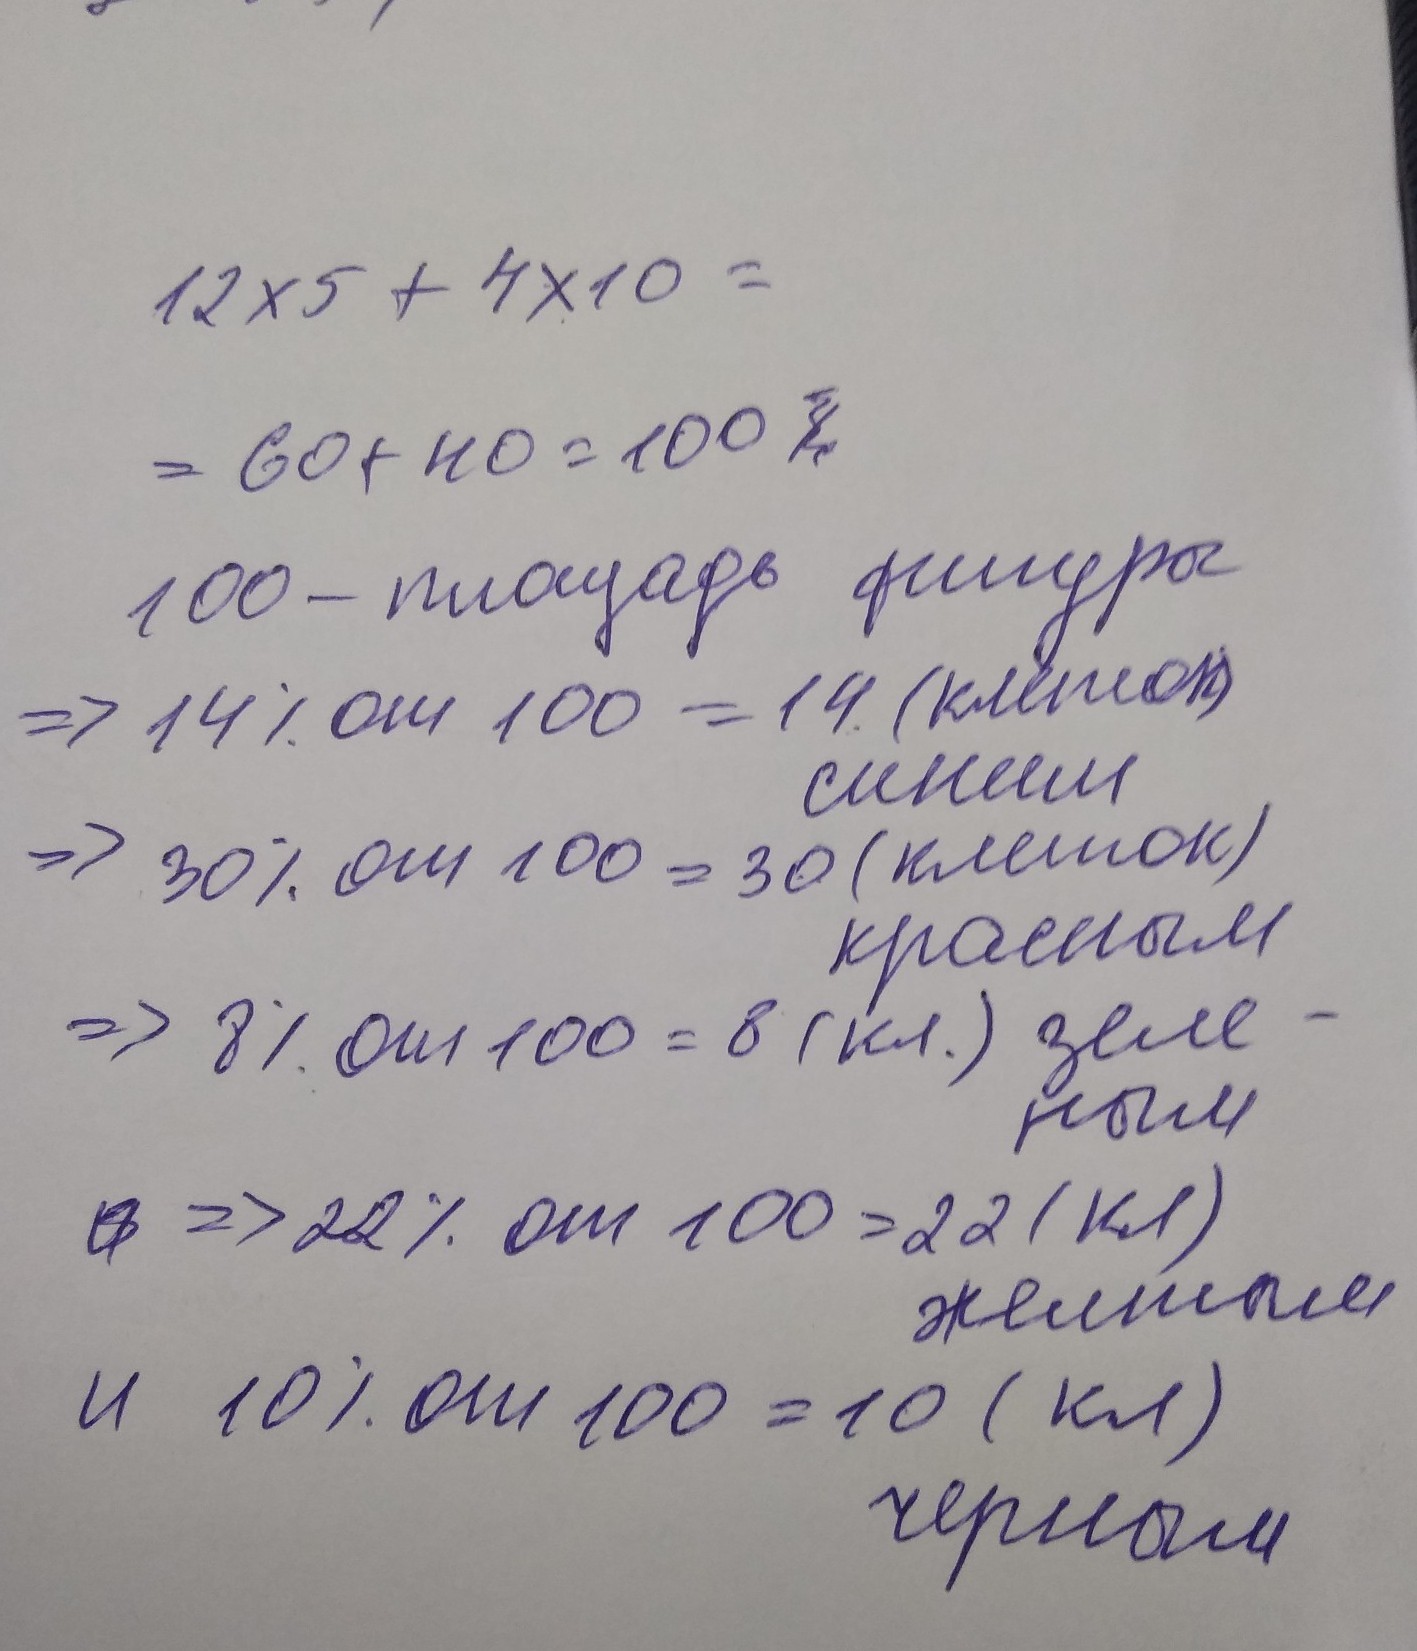 12x5 + 4x10 =
= 60 + 40 = 100
100 - площадь фигуры
=> 14% от 100 = 14 (клеток)
синим
=> 30% от 100 = 30 (клеток)
красным
=> 8% от 100 = 8 (кл.) зеле -
ным
=> 22% от 100 = 22 (кл)
желтым
и 10% от 100 = 10 (кл)
черным